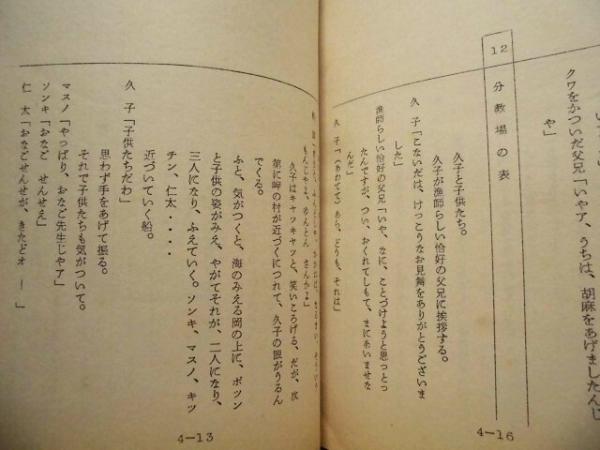 クワをかついだ父兄「いやア、うちは、胡麻をあげましたんじ
や」
12 分教場の表
久子と子供たち。
久子が漁師らしい恰好の父兄に挨拶する。
久 子「こないだは、けっこうなお見舞をありがとうございま
した」
漁師らしい恰好の父兄「いや、なに、ことづけようと思っとっ
たんですが、つい、おくれてしもて、まにあいませな
んだ」
久 子「(あわてて)あら、どうも、それは」
4-16
久子はキャッキャッと、笑いころげる。だが、次
第に岬の村が近づくにつれて、久子の眼がうるん
でくる。
ふと、気がつくと、海のみえる岡の上に、ポツン
と子供の姿がみえ、やがてそれが、二人になり、
三人になり、ふえていく。ソンキ、マスノ、キッ
チン、仁太・・・・
近づいていく船。
久 子「子供たちだわ」
思わず手をあげて振る。
それで子供たちも気がついて。
マスノ「やっぱり、おなご先生じゃア」
ソンキ「おなご せんせえ」
仁 太「おなごせんせが、きたどオ ー 」
4-13